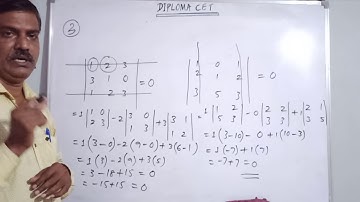 DIPLOMA CET
3
1 2 3
3 1 0 = 0
1 2 3
= 1 |1 0| - 2 |3 0| + 3 |3 1|
|2 3| |1 3| |1 2|
= 1(3-0) - 2(9-0) + 3(6-1)
= 1(3) - 2(9) + 3(5)
= 3 - 18 + 15 = 0
= -15 + 15 = 0
1 0 1
2 1 2 = 0
3 5 3
= 1 |1 2| - 0 |2 2| + 1 |2 1|
|5 3| |3 3| |3 5|
= 1(3-10) - 0 + 1(10-3)
= 1(-7) + 1(7)
= -7 + 7 = 0